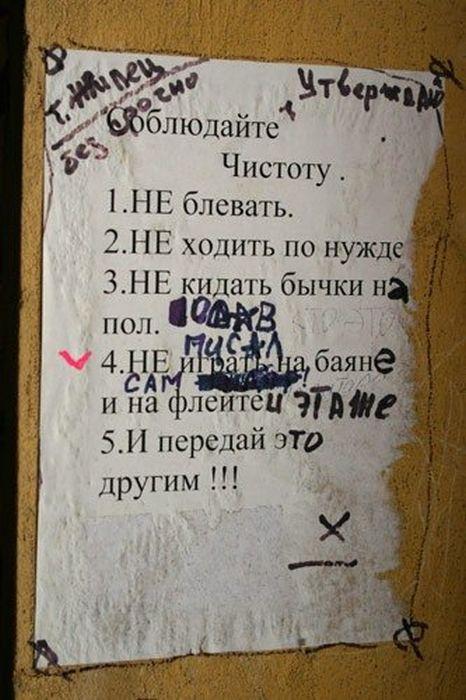 т. Жилец
без срочно
Утвержд
Соблюдайте
Чистоту .
1.НЕ блевать.
2.НЕ ходить по нужде
3.НЕ кидать бычки на
пол.
ПИСАЛ
4.НЕ играть на баяне
САМ !
и на флейте и ЭТАЖЕ
5.И передай это
другим !!!
X